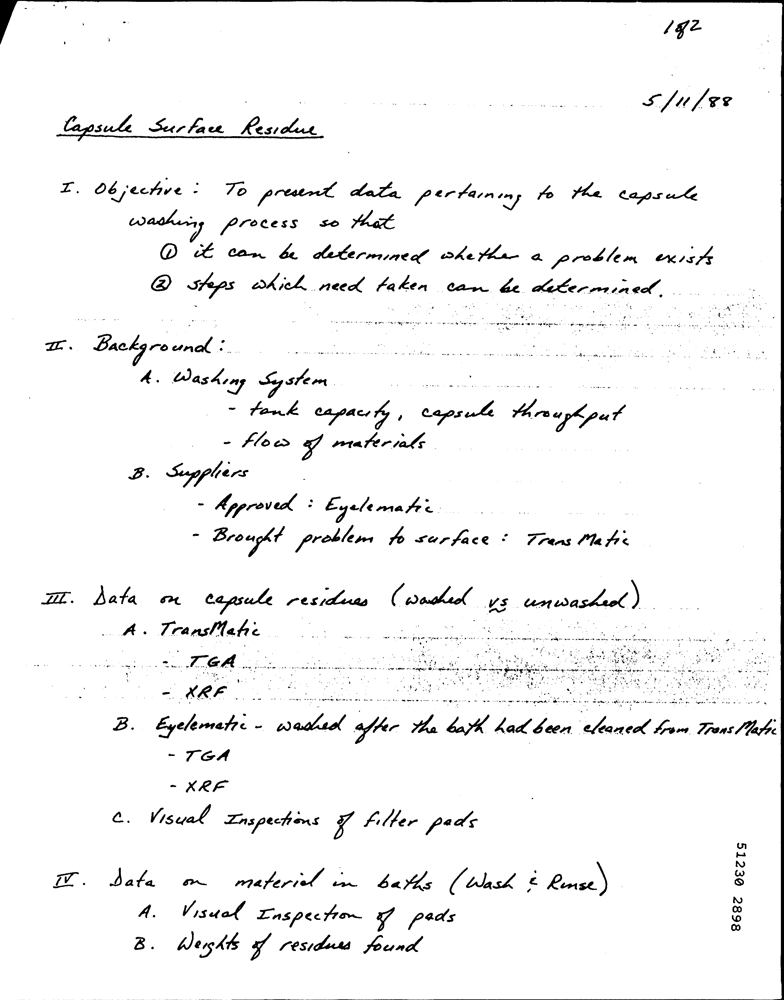 1 of 2
5/11/88
Capsule Surface Residue
I. Objective : To present data pertaining to the capsule
washing process so that
① it can be determined whether a problem exists
② steps which need taken can be determined.
II. Background :
A. Washing System
- tank capacity, capsule throughput
- flow of materials
B. Suppliers
- Approved : Eyelematic
- Brought problem to surface : TransMatic
III. Data on capsule residues (washed vs unwashed)
A. TransMatic
- TGA
- XRF
B. Eyelematic - washed after the bath had been cleaned from TransMatic
- TGA
- XRF
C. Visual Inspections of filter pads
IV. Data on material in baths (Wash & Rinse)
A. Visual Inspection of pads
B. Weights of residues found
51230 2898